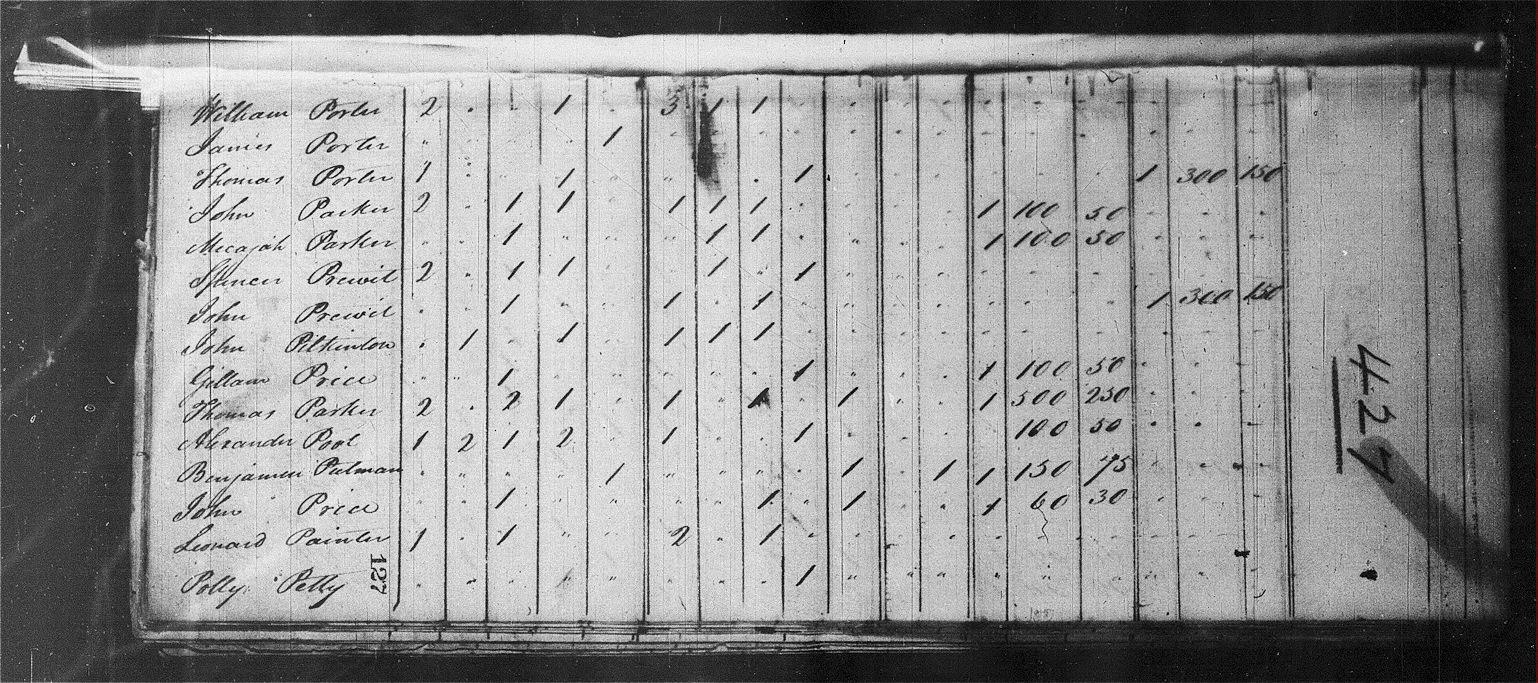 William Porter 2 . . 1 . 3 1 1
James Porter " 1
Thomas Porter 1 1 1 1 300 150
John Parker 2 . 1 1 1 1 1 1 100 50
Mecajah Parker 1 1 1 1 100 50
Spencer Prewit 2 . 1 1 1 1
John Prewit . 1 1 1 1 300 150
John Pilkinton . 1 . 1 1 1 1
Gillam Price 1 1 1 100 50
Thomas Parker 2 . 2 1 1 1 1 1 500 250
Alexander Pool 1 2 1 2 1 1 100 50
Benjamin Putman 1 1 1 1 150 75
John Price 1 1 1 1 60 30
Leonard Painter 1 . 1 2 1
Polly Petty 1
127
427